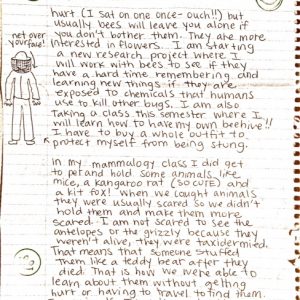 hurt (I sat on one once- ouch!!) but
usually bees will leave you alone if
you don't bother them. They are more
interested in flowers. I am starting
a new research project where I
will work with bees to see if they
have a hard time remembering and
learning new things if they are
exposed to chemicals that humans
use to kill other bugs. I am also
taking a class this semester where I
will learn how to have my own beehive!!
I have to buy a whole outfit to
protect myself from being stung.
net over
your face!
In my mammalogy class I did get
to pet and hold some animals like
mice, a kangaroo rat (SO CUTE) and
a kit fox! When we caught animals
they were usually scared so we didn't
hold them and make them more
scared. I am not scared to see the
antelopes or the grizzly because they
weren't alive, they were taxidermied.
That means that someone stuffed
them like a teddy bear after they
died. That is how we were able to
learn about them without getting
hurt or having to travel to find them.